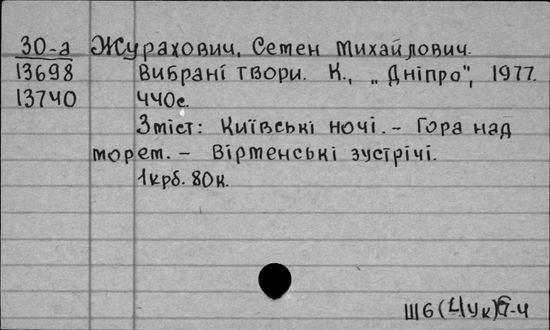 30-а Журахович, Семен Михайлович.
13698 Вибрані твори. К., „Дніпро", 1977.
13740 440с.
Зміст: Київські ночі. – Гора над
морем. – Вірменські зустрічі.
1крб. 80к.
Ш6(4Ук)6-4